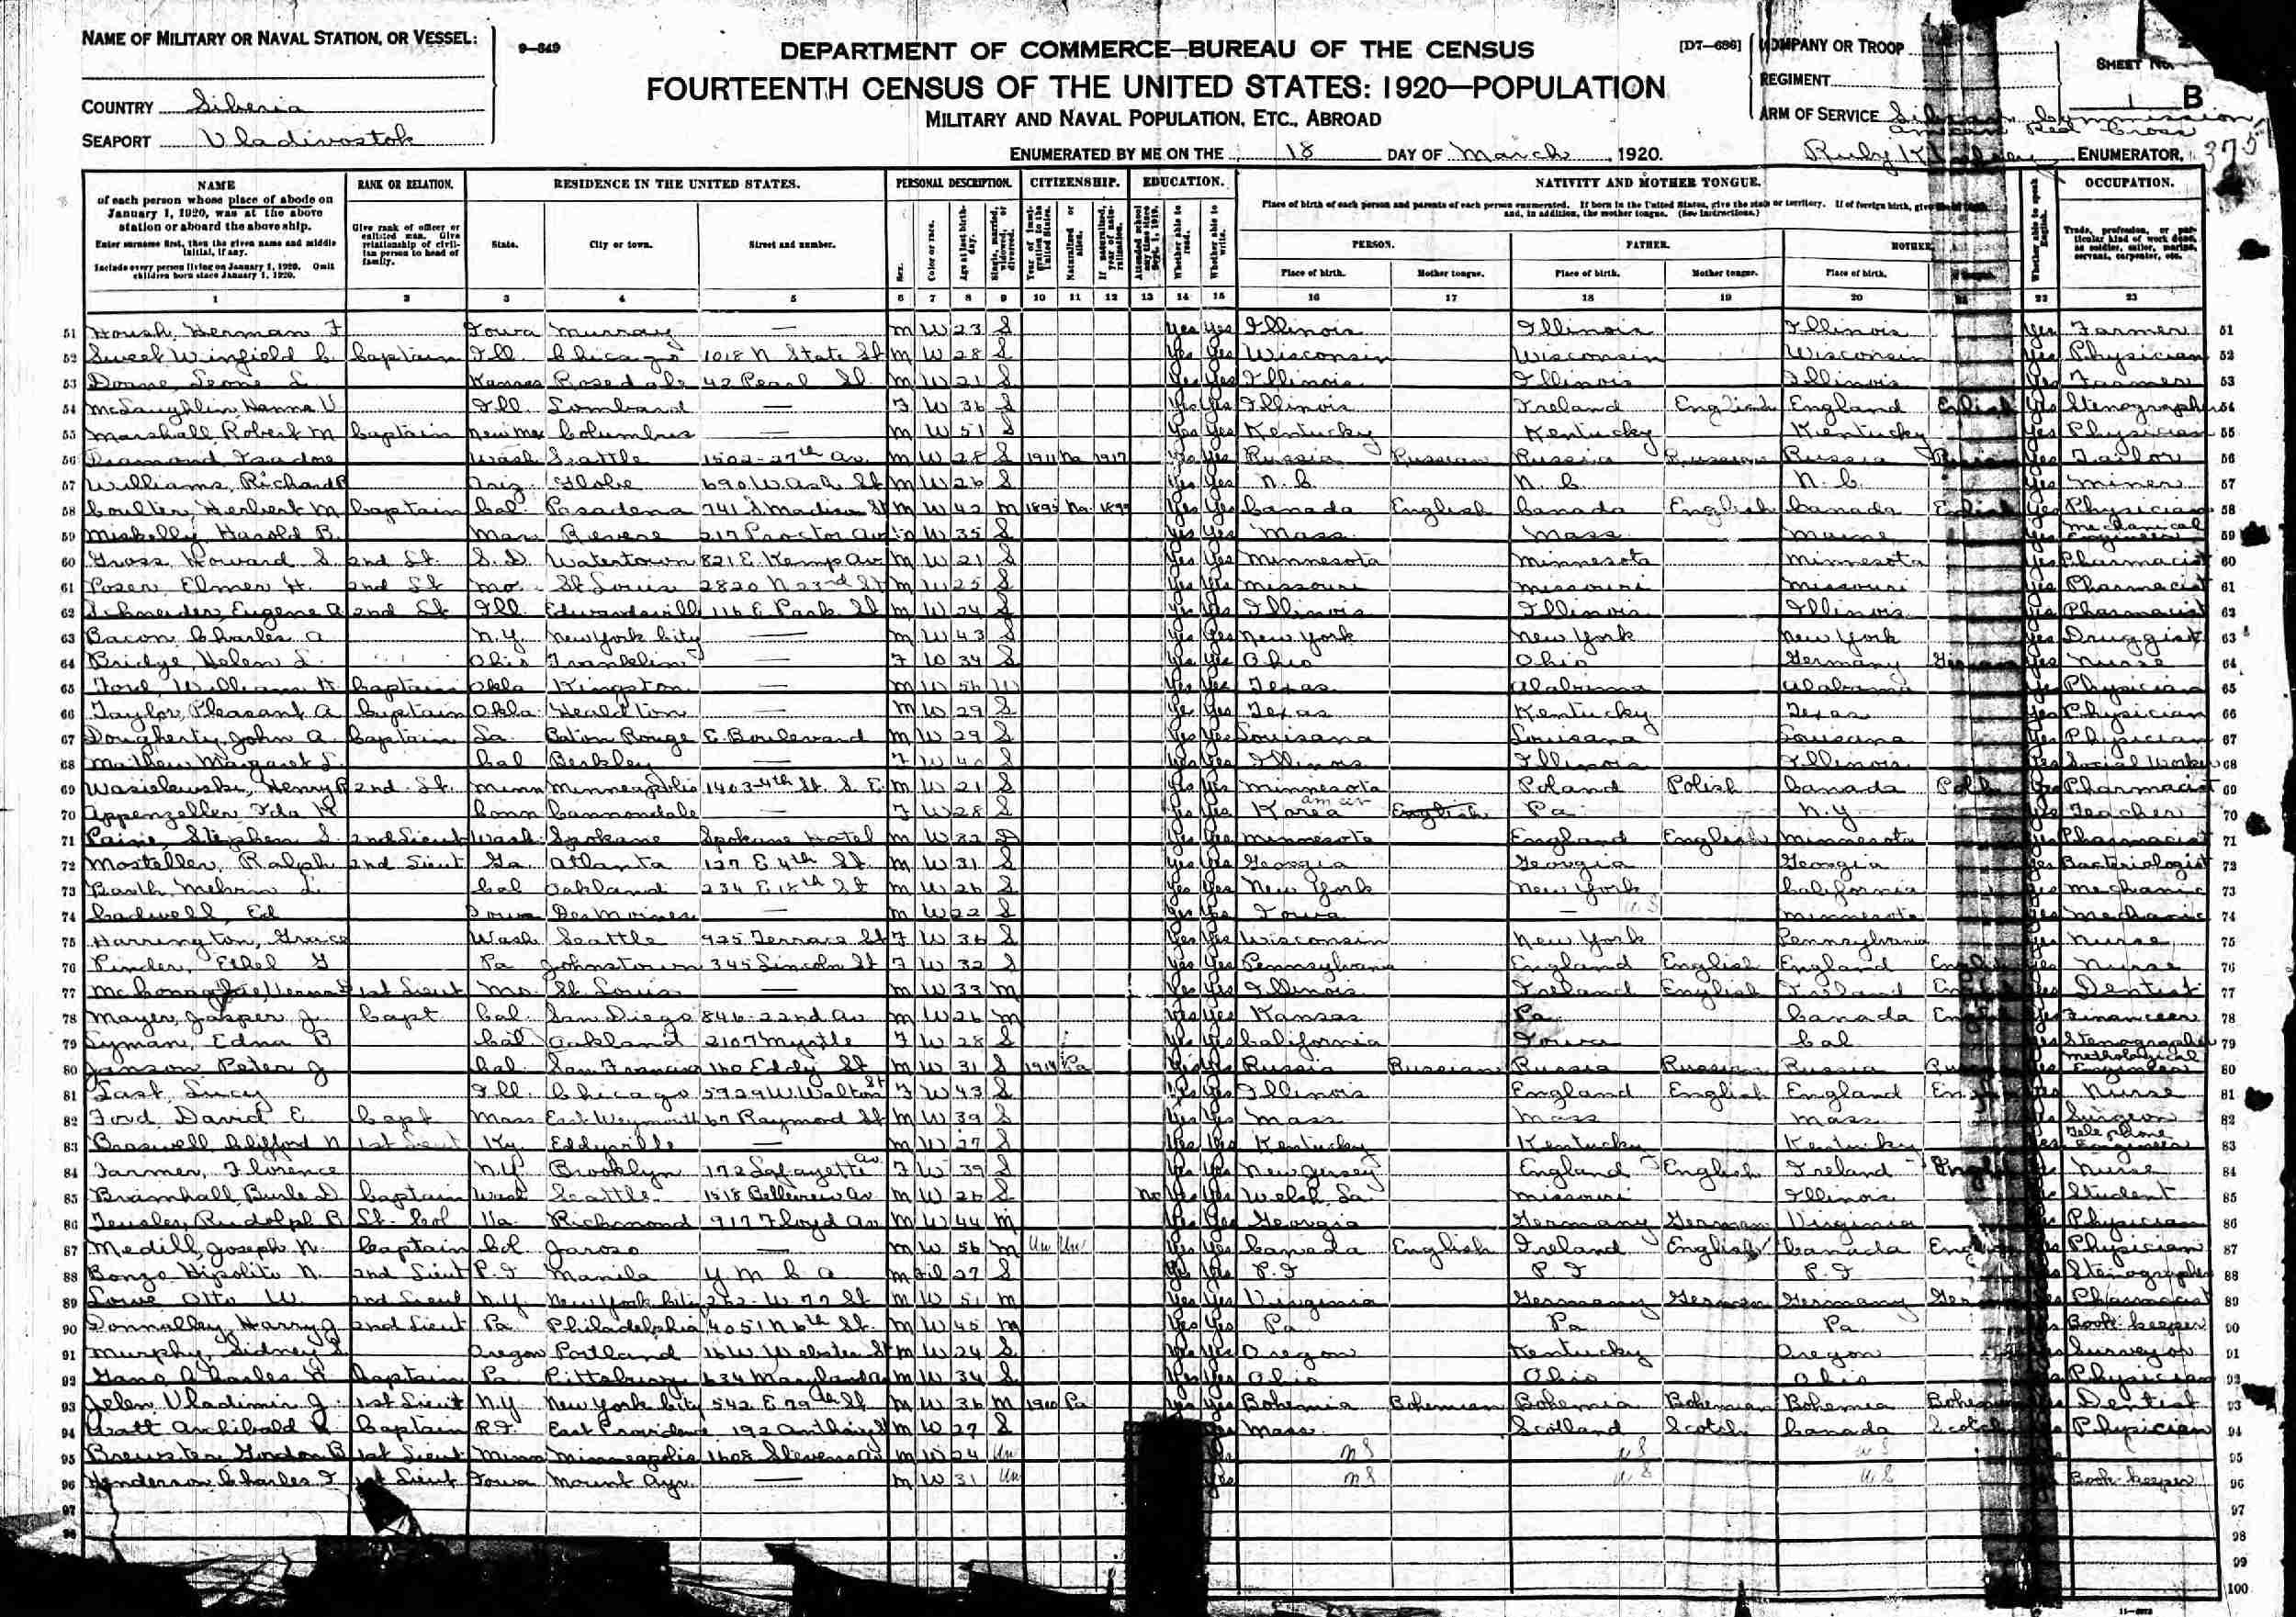 NAME OF MILITARY OR NAVAL STATION, OR VESSEL:
9-649
DEPARTMENT OF COMMERCE—BUREAU OF THE CENSUS
[D7—686]
COMPANY OR TROOP
SHEET No.
FOURTEENTH CENSUS OF THE UNITED STATES: 1920—POPULATION
REGIMENT
COUNTRY Siberia
MILITARY AND NAVAL POPULATION, ETC., ABROAD
ARM OF SERVICE Commission, 1 B
American Red Cross
SEAPORT Vladivostok
ENUMERATED BY ME ON THE 18 DAY OF March, 1920.
Ruby ENUMERATOR. 375
NAME
of each person whose place of abode on January 1, 1920, was at the above station or aboard the above ship.
Enter surname first, then the given name and middle initial, if any.
Include every person living on January 1, 1920. Omit children born since January 1, 1920.
RANK OR RELATION.
Give rank of officer or enlisted man. Give relationship of civilian person to head of family.
RESIDENCE IN THE UNITED STATES.
State. City or town. Street and number.
PERSONAL DESCRIPTION.
Sex. Color or race. Age at last birthday. Single, married, widowed, or divorced.
CITIZENSHIP.
Year of immigration to the United States. Naturalized or alien. If naturalized, year of naturalization.
EDUCATION.
Attended school any time since Sept. 1, 1919. Whether able to read. Whether able to write.
NATIVITY AND MOTHER TONGUE.
Place of birth of each person and parents of each person enumerated. If born in the United States, give the state or territory. If of foreign birth, give
and, in addition, the mother tongue. (See instructions.)
PERSON. FATHER. MOTHER
Place of birth. Mother tongue. Place of birth. Mother tongue. Place of birth.
Whether able to speak English.
OCCUPATION.
Trade, profession, or particular kind of work done, as soldier, sailor, marine, servant, carpenter, etc.
1 2 3 4 5 6 7 8 9 10 11 12 13 14 15 16 17 18 19 20 21 22 23
51 Housh, Herman F Iowa Murray — M W 23 S Yes Yes Illinois Illinois Illinois Yes Farmer 51
52 Sweet Winfield C. Captain Ill. Chicago 1018 N State St M W 28 S Yes Yes Wisconsin Wisconsin Wisconsin Yes Physician 52
53 Doane, Leone L. Kansas Rosedale 42 Pearl St. M W 21 S Yes Yes Illinois Illinois Illinois Yes Farmer 53
54 McLaughlin, Hanna V Ill. Lombard — F W 36 S Yes Yes Illinois Ireland English England Yes Stenographer 54
55 Marshall, Robert M Captain New Mex Columbus — M W 51 S Yes Yes Kentucky Kentucky Kentucky Yes Physician 55
56 Diamond, Isadore Wash Seattle 1502-27th Av. M W 28 S 1911 Na 1917 Yes Yes Russia Russian Russia Russian Russia Yes Tailor 56
57 Williams, Richard R Ariz. Globe 690 W. Ash St M W 26 S Yes Yes N. C. N. C. N. C. Yes Miner 57
58 Coulter, Herbert M Captain Cal. Pasadena 741 S Madison St M W 42 M 1895 Na. 1899 Yes Yes Canada English Canada English Canada Yes Physician 58
59 Miskelly, Harold B. Mass Revere 217 Proctor Av W 35 S Yes Yes Mass. Mass Maine Yes Mechanical Engineer 59
60 Gross, Howard S. 2nd Lt. S. D. Watertown 821 E. Kemp Av. M W 21 S Yes Yes Minnesota Minnesota Minnesota Yes Pharmacist 60
61 Poser, Elmer H. 2nd Lt Mo. St Louis 2820 N 23rd St M W 25 S Yes Yes Missouri Missouri Missouri Yes Pharmacist 61
62 Schneider, Eugene A. 2nd Lt Ill. Edwardsville 116 E Park St M W 24 S Yes Yes Illinois Illinois Illinois Yes Pharmacist 62
63 Bacon, Charles A N.Y. New York City — M W 43 S Yes Yes New York New York New York Yes Druggist 63
64 Bridge, Helen L. Ohio Franklin — F W 34 S Yes Yes Ohio Ohio Germany German Yes Nurse 64
65 Ford, William H. Captain Okla Kingston — M W 56 W Yes Yes Texas Alabama Alabama Yes Physician 65
66 Taylor, Pleasant A Captain Okla. Healdton — M W 29 S Yes Yes Texas Kentucky Texas Yes Physician 66
67 Dougherty, John A. Captain La. Baton Rouge E. Boulevard M W 29 S Yes Yes Louisana Louisana Louisana Yes Physician 67
68 Mathew, Margaret L. Cal Berkley — F W 40 S Yes Yes Illinois Illinois Illinois Yes Social Worker 68
69 Wasielewski, Henry R 2nd Lt. Minn Minneapolis 1403-4th St. S. E. M W 21 S Yes Yes Minnesota Poland Polish Canada Yes Pharmacist 69
70 Appenzeller, Ida H Conn Cannondale — F W 28 S Yes Yes Korea am cit English Pa N.Y Yes Teacher 70
71 Paine, Stephen S. 2nd Lieut Wash. Spokane Spokane Hotel M W 32 D Yes Yes Minnesota England English Minnesota Yes Pharmacist 71
72 Mosteller, Ralph 2nd Lieut Ga. Atlanta 127 E 4th St. M W 31 S Yes Yes Georgia Georgia Georgia Yes Bacteriologist 72
73 Melvin L. Cal Oakland 234 E 18th St M W 26 S Yes Yes New York New York California Yes Mechanic 73
74 Cadwell, Ed Iowa Des Moines — M W 22 S Yes Yes Iowa — U S Minnesota Yes Mechanic 74
75 Harrington, Grace Wash Seattle 925 Terrace St F W 36 S Yes Yes Wisconsin New York Pennsylvania Yes Nurse 75
76 Pinder, Ethel G Pa Johnstown 345 Lincoln St F W 32 S Yes Yes Pennsylvania England English England Yes Nurse 76
77 1st Lieut Mo. St. Louis — M W 33 M Yes Yes Illinois Ireland English Ireland Yes Dentist 77
78 Mayer, Jasper J. Capt Cal. San Diego 846-22nd Av M W 26 M Yes Yes Kansas Pa. Canada Yes Financeer 78
79 Lyman, Edna B Cal Oakland 2107 Myrtle F W 28 S Yes Yes California Iowa Cal Yes Stenographer 79
80 Janson Peter J Cal. San Francisco 160 Eddy St M W 31 S 1914 Pa Yes Yes Russia Russian Russia Russian Russia Yes Engineer 80
81 Last, Lucy Ill. Chicago 5929 W. Walton St F W 43 S Yes Yes Illinois England English England Nurse 81
82 Ford, David E. Capt Mass East Weymouth 67 Raymond St M W 39 S Yes Yes Mass Mass Mass Surgeon 82
83 Braswell, Clifford N 1st Lieut Ky. Eddyville — M W 27 S Yes Yes Kentucky Kentucky Kentucky Yes Telephone Engineer 83
84 Farmer, Florence N.Y. Brooklyn 172 Lafayette Av F W 39 S Yes Yes New Jersey England English Ireland Nurse 84
85 Bramhall, Burle D Captain Wash Seattle 1518 Bellevue Av M W 26 S No Yes Yes Welsh, La. Missouri Illinois Student 85
86 Teusler, Rudolph B Lt. Col Va. Richmond 917 Floyd Av M W 44 M Yes Yes Georgia Germany German Virginia Physician 86
87 Medill, Joseph N. Captain Col. Jaroso — M W 56 M Un Un Yes Yes Canada English Ireland English Canada Physician 87
88 Bonzo Hipolito N. 2nd Lieut P. I Manila Y M C A M Fil 27 S Yes Yes P. I P. I P. I Stenographer 88
89 Lowe Otto W. 2nd Lieut N.Y. New York City 262-W. 77 St M W 51 M Yes Yes Virginia Germany German Germany Pharmacist 89
90 Donnolley, Harry J 2nd Lieut Pa. Philadelphia 4051 N 6th St. M W 45 M Yes Yes Pa Pa Pa Book keeper 90
91 Murphy, Sidney L Oregon Portland 16 W. Webster St M W 24 S Yes Yes Oregon Kentucky Oregon Surveyor 91
92 Charles Captain Pa. Pittsburg 634 Maryland Av M W 34 S Yes Yes Ohio Ohio Ohio Physician 92
93 Jelen Vladimir J. 1st Lieut N.Y New York City 542 E 79th St M W 36 M 1900 Pa Yes Yes Bohemia Bohemian Bohemia Bohemian Bohemia Dentist 93
94 Archibald Captain R.I. East Providence 192 Anthony St M W 27 S Mass. Scotland Scotch Canada Scotch Physician 94
95 Brewster Gordon B 1st Lieut Minn Minneapolis 1608 Stevens Av M W 24 Un U S U S U S 95
96 Henderson Charles F. 1st Lieut Iowa Mount Ayr. — M W 31 Un Yes U S U S U S Book-keeper 96
97 97
98 98
99
100